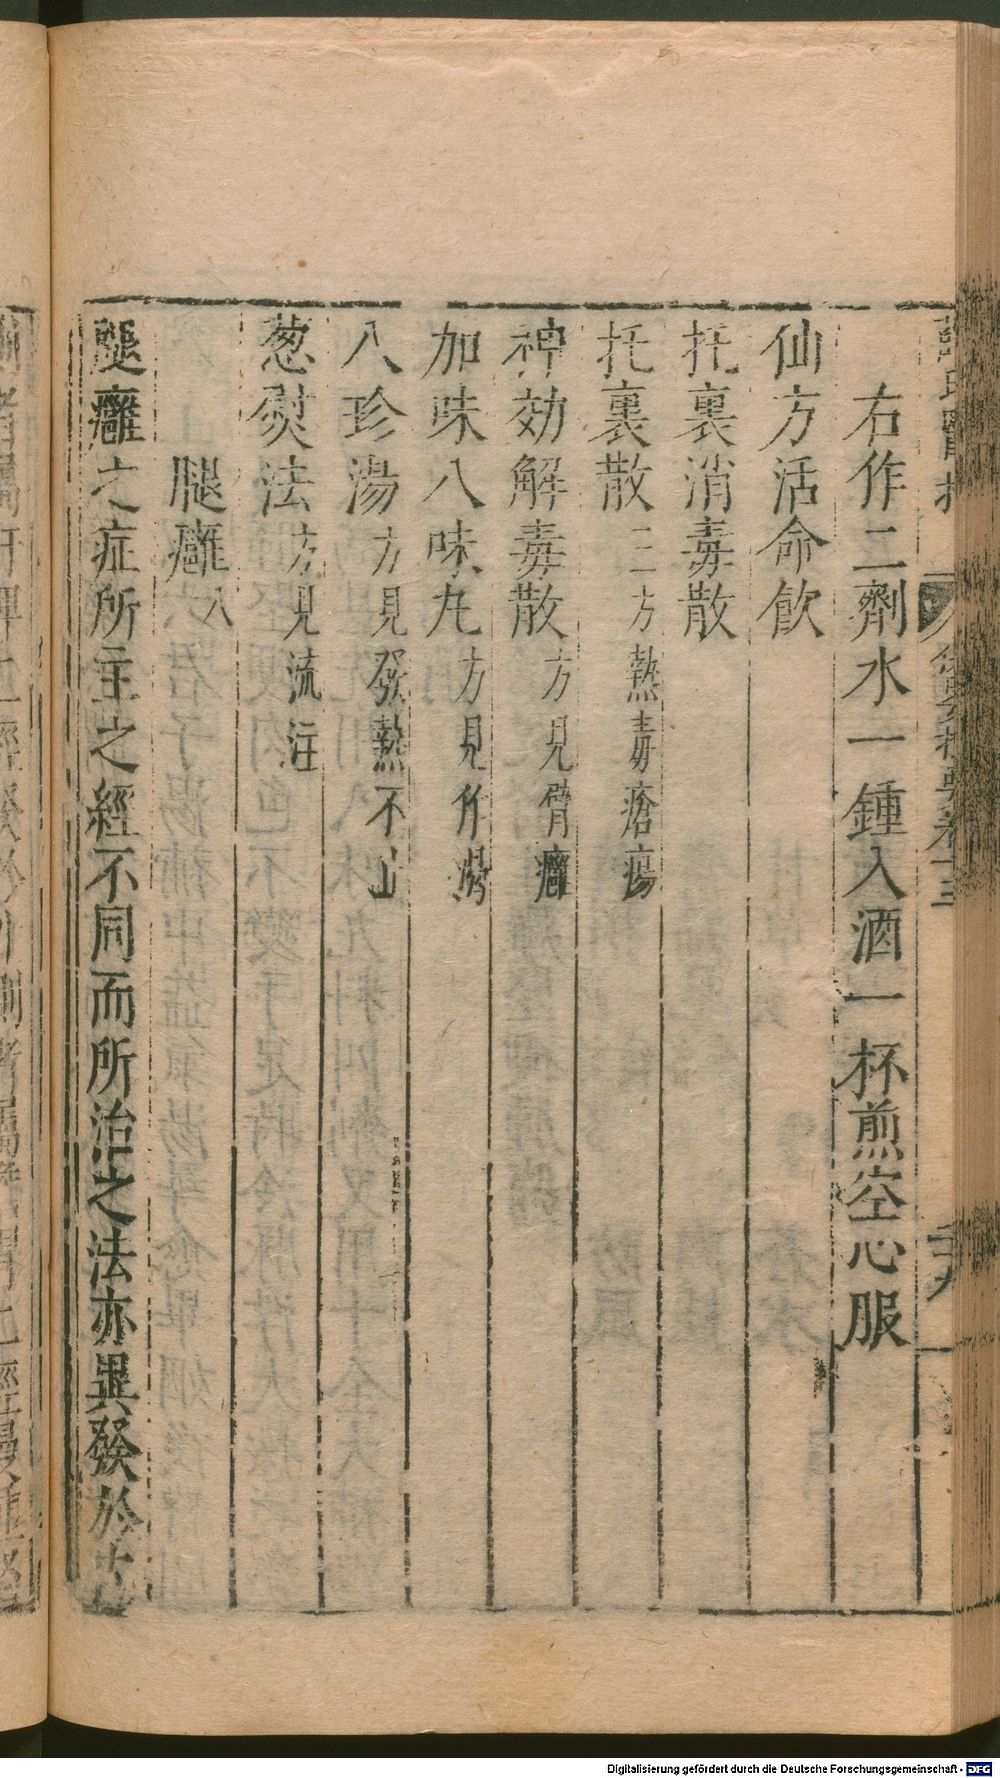 右作二劑水一鍾入酒一杯煎空心服
仙方活命飲
托裏消毒散
托裏散 二方見熱毒瘡瘍
神効解毒散 方見臂癰
加味八味丸 方見作渴
八珍湯 方見發熱不止
葱熨法 方見流注
腿癰 八
腿癰之症所主之經不同而所治之法亦異發於
Digitalisierung gefördert durch die Deutsche Forschungsgemeinschaft - DFG